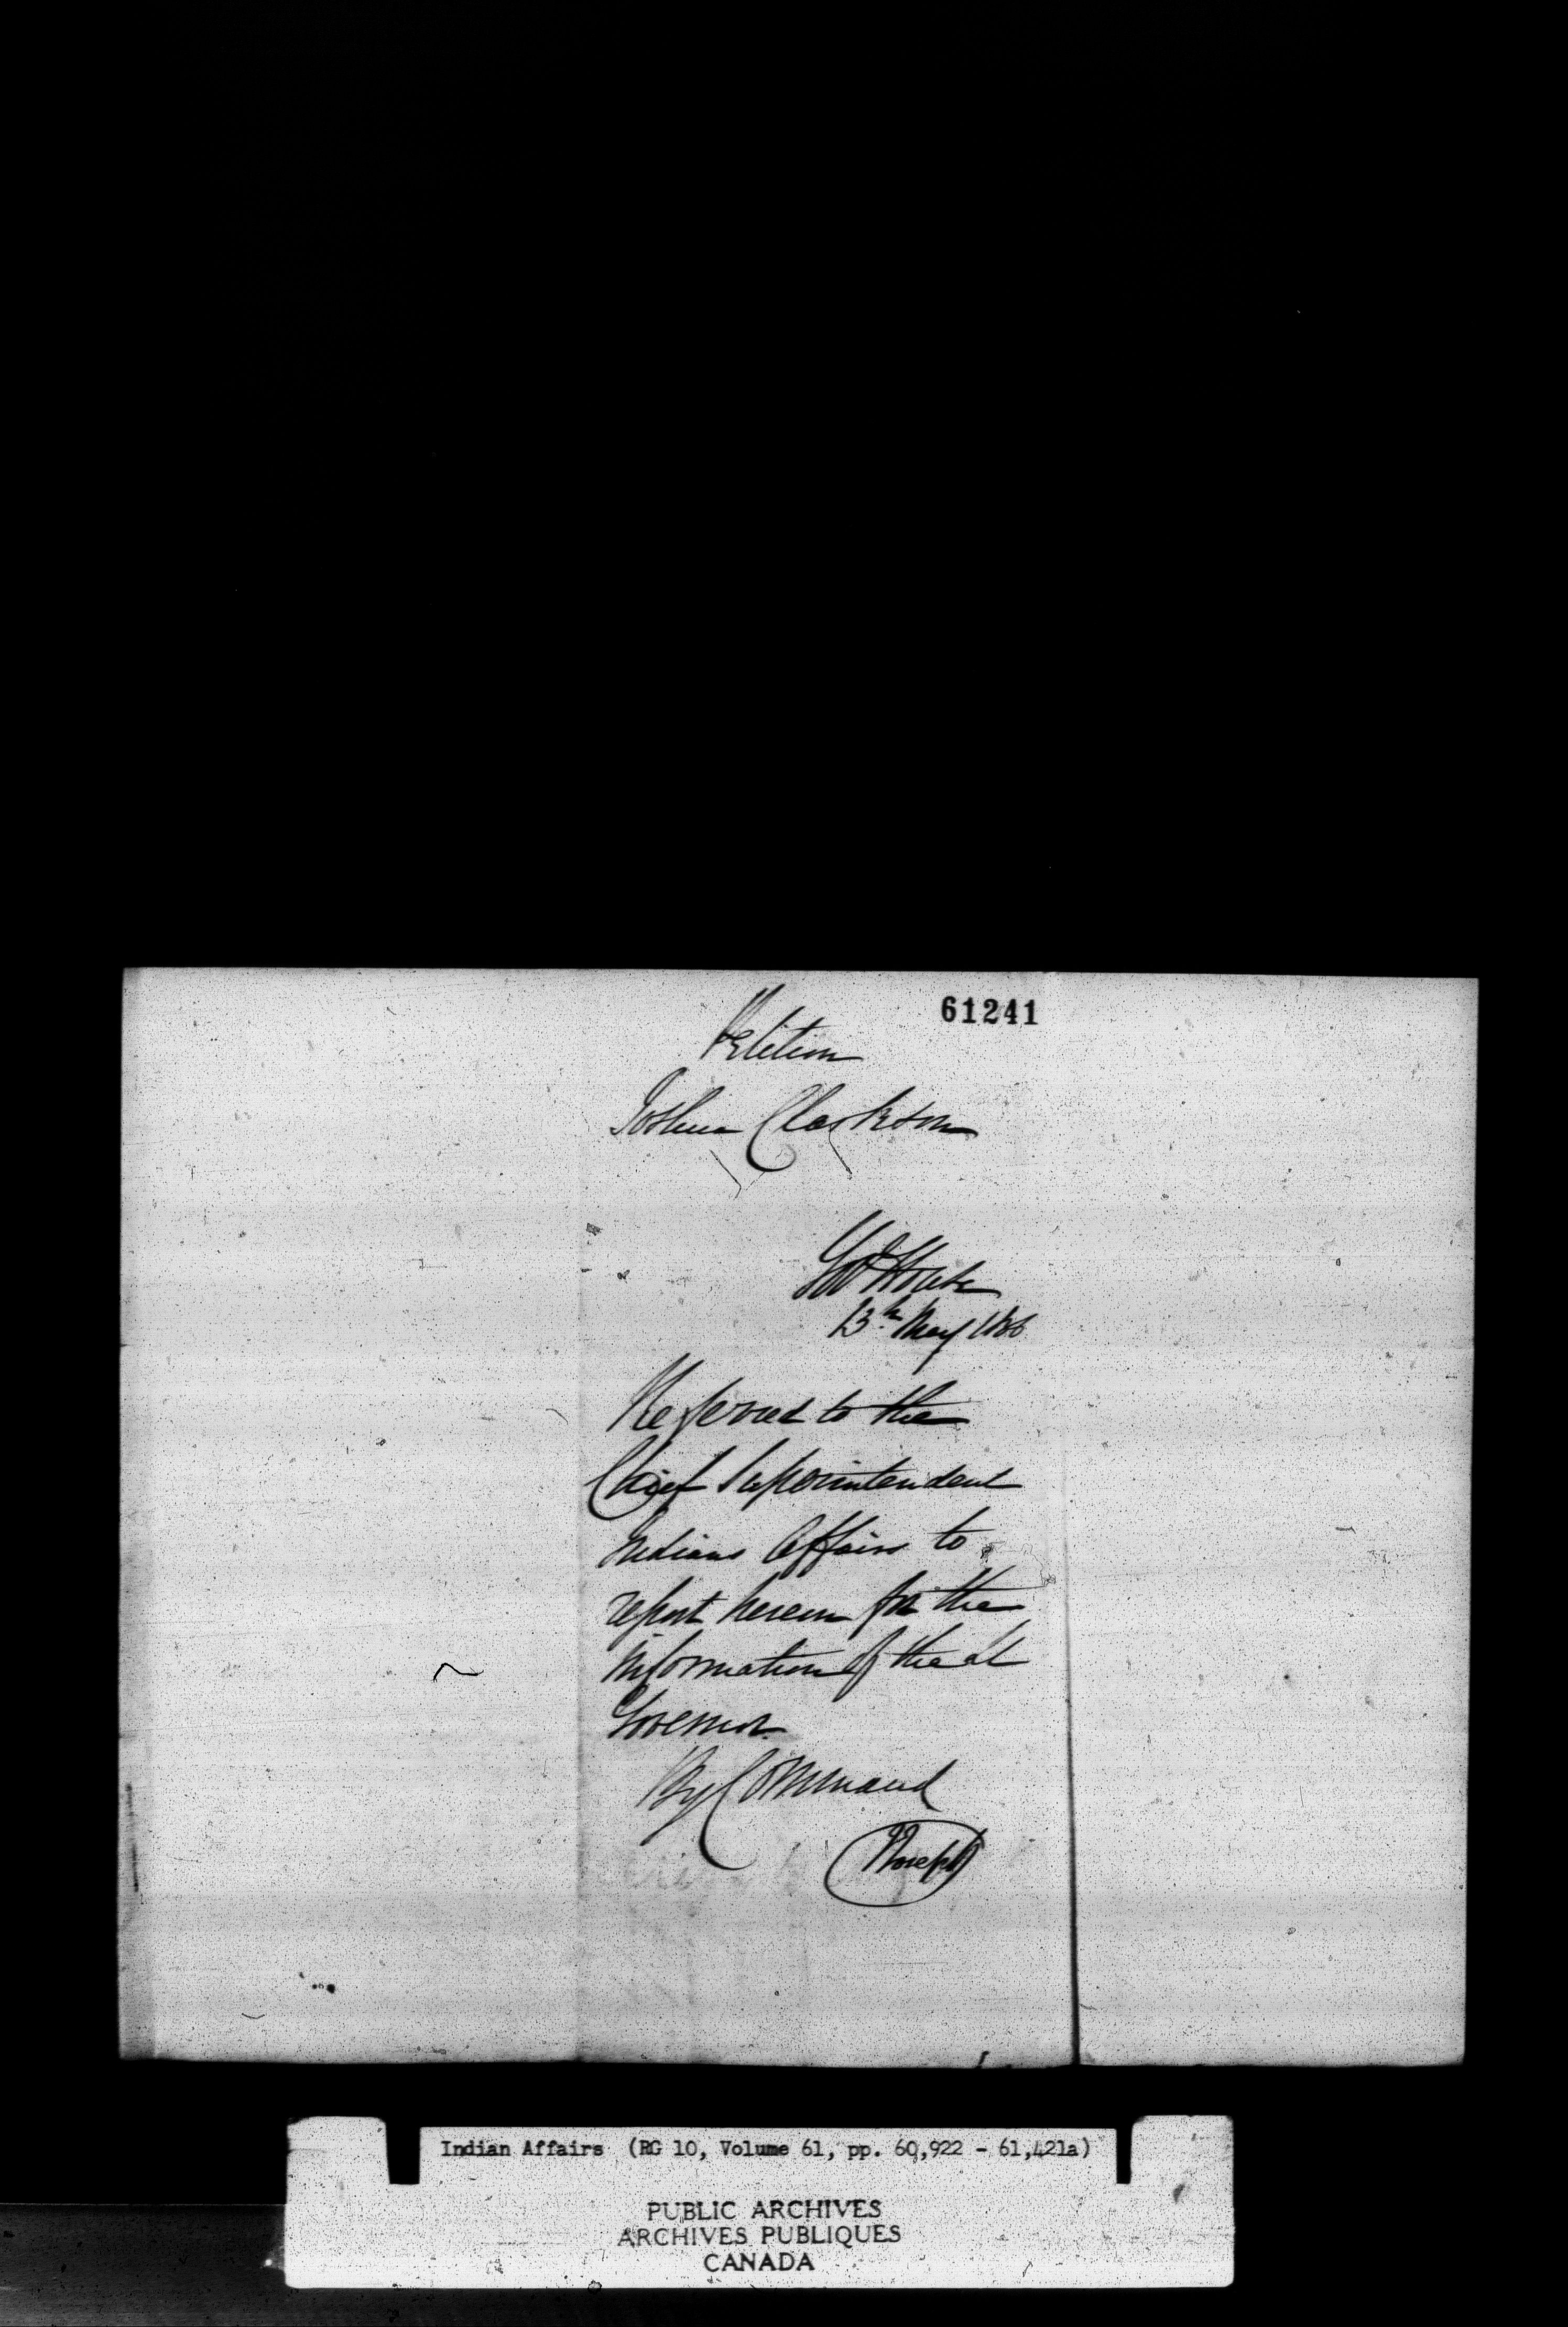 61241
Petition
Joshua Clarkson
Govt House
13th May 1836
Referred to the
Chief Superintendent
Indians Affairs to
report hereon for the
information of the Lt
Governor.
By Command
J Joseph
Indian Affairs (RG 10, Volume 61, pp. 60,922 - 61,421a)
PUBLIC ARCHIVES
ARCHIVES PUBLIQUES
CANADA